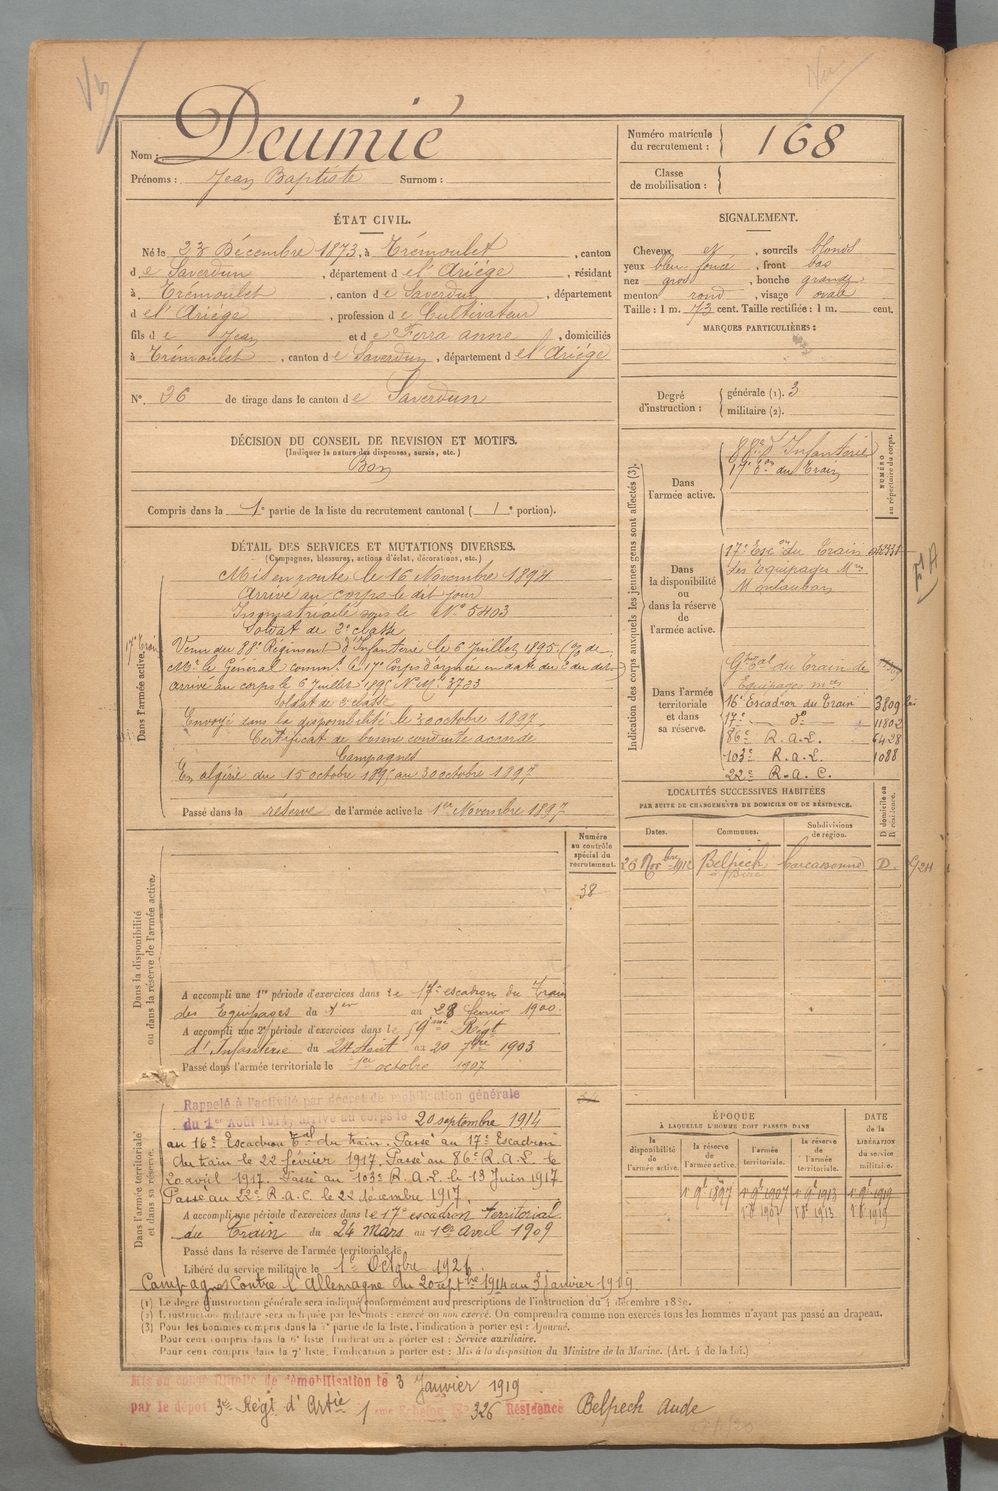 Nom : Deumié
Prénoms : Jean Baptiste Surnom :
Numéro matricule du recrutement : 168
Classe de mobilisation :
ÉTAT CIVIL.
Né le 23 Décembre 1873, à Trémoulet, canton
de Saverdun, département de l'Ariège, résidant
à Trémoulet, canton de Saverdun, département
de l'Ariège, profession de Cultivateur
fils de Jean et de Ferra anne, domiciliés
à Trémoulet, canton de Saverdun, département de l'Ariége
N°. 36 de tirage dans le canton de Saverdun
DÉCISION DU CONSEIL DE REVISION ET MOTIFS.
(Indiquer la nature des dispenses, sursis, etc.)
Bon
Compris dans la 1e partie de la liste du recrutement cantonal (1e portion).
SIGNALEMENT.
Cheveux et, sourcils blonds
yeux bleu foncé, front bas
nez gros, bouche grande
menton rond, visage ovale
Taille : 1 m. 73 cent. Taille rectifiée : 1 m. cent.
MARQUES PARTICULIÈRES :
Degré d'instruction : générale (1). 3
militaire (2).
DÉTAIL DES SERVICES ET MUTATIONS DIVERSES.
(Campagnes, blessures, actions d'éclat, décorations, etc.)
Dans l'armée active.
Mis en route le 16 Novembre 1894
Arrivé au corps le dit jour
Immatriculé sous le N° 5403
Soldat de 2e classe
Venu du 88e Régiment d'Infanterie le 6 Juillet 1895
Mr le Général commt le 17e Corps d'armée en date du
arrivé au corps le 6 Juillet 1895 N° Mle 3723
Soldat de 2e classe
Envoyé dans la disponibilité le 30 octobre 1897.
Certificat de bonne conduite accordé
Campagnes
En algérie du 15 octobre 1895 au 30 octobre 1897
Passé dans la réserve de l'armée active le 1er Novembre 1897
Indication des corps auxquels les jeunes gens sont affectés (3).
NUMÉRO au répertoire du corps.
Dans l'armée active.
88e d'Infanterie
17e Eon du Train
Dans la disponibilité ou dans la réserve de l'armée active.
17e Esc on du Train
des Equipages Mres
Montauban
Dans l'armée territoriale et dans sa réserve.
du Train des
Equipages mres
16e Escadron du Train 3809
17e — do — 11802
86e R.A.L. 6428
103e R.A.L. 1088
22e R.A.C.
LOCALITÉS SUCCESSIVES HABITÉES
PAR SUITE DE CHANGEMENTS DE DOMICILE OU DE RÉSIDENCE.
D domicile ou R résidence.
Dates. Communes. Subdivisions de région.
26 Novbre 1912 Belpech Carcassonne D.
Numéro au contrôle spécial du recrutement.
38
Dans la disponibilité ou dans la réserve de l'armée active.
A accompli une 1re période d'exercices dans le 17e escadron du Train
des Equipages du 1er au 28 février 1900.
A accompli une 2e période d'exercices dans le
d'Infanterie du 24 Août au 20 7bre 1903
Passé dans l'armée territoriale le 1er octobre 1907
Dans l'armée territoriale et dans sa réserve.
Rappelé à l'activité par décret de mobilisation générale
du 1er Août 1914, arrivé au corps le 20 septembre 1914
au 16e Escadron Tal du train. Passé au 17e Escadron
du train le 22 février 1917, Passé au 86e R.A.L. le
20 avril 1917. Passé au 103e R.A.L. le 13 Juin 1917
Passé au 22e R.A.C. le 22 décembre 1917.
A accompli une période d'exercices dans le 17e escadron territorial
du Train du 24 mars au 1er Avril 1909
Passé dans la réserve de l'armée territoriale le
Libéré du service militaire le 1er Octobre 192
Campagnes Contre l'Allemagne du 20 septbre 1914 au 3 janvier 1919
ÉPOQUE
À LAQUELLE L'HOMME DOIT PASSER DANS
la disponibilité de l'armée active.
la réserve de l'armée active.
l'armée territoriale.
la réserve de l'armée territoriale.
DATE de la LIBÉRATION du service militaire.
(1) Le degré d'instruction générale sera indiqué conformément aux prescriptions de l'instruction du décembre 188
(2) L'instruction militaire sera indiquée par les mots : exercé ou non exercé. On comprendra comme non exercés tous les hommes n'ayant pas passé au drapeau.
(3) Pour les hommes compris dans la partie de la liste, l'indication à porter est : Ajourné.
Pour ceux compris dans la 6e liste, l'indication à porter est : Service auxiliaire.
Pour ceux compris dans la 7e liste, l'indication à porter est : Mis à la disposition du Ministre de la Marine. (Art. 4 de la loi.)
Mis en congé illimité de démobilisation le 3 Janvier 1919
par le dépôt 3e Régt d'Artie 1eme Echelon N° 326 Résidence Belpech Aude